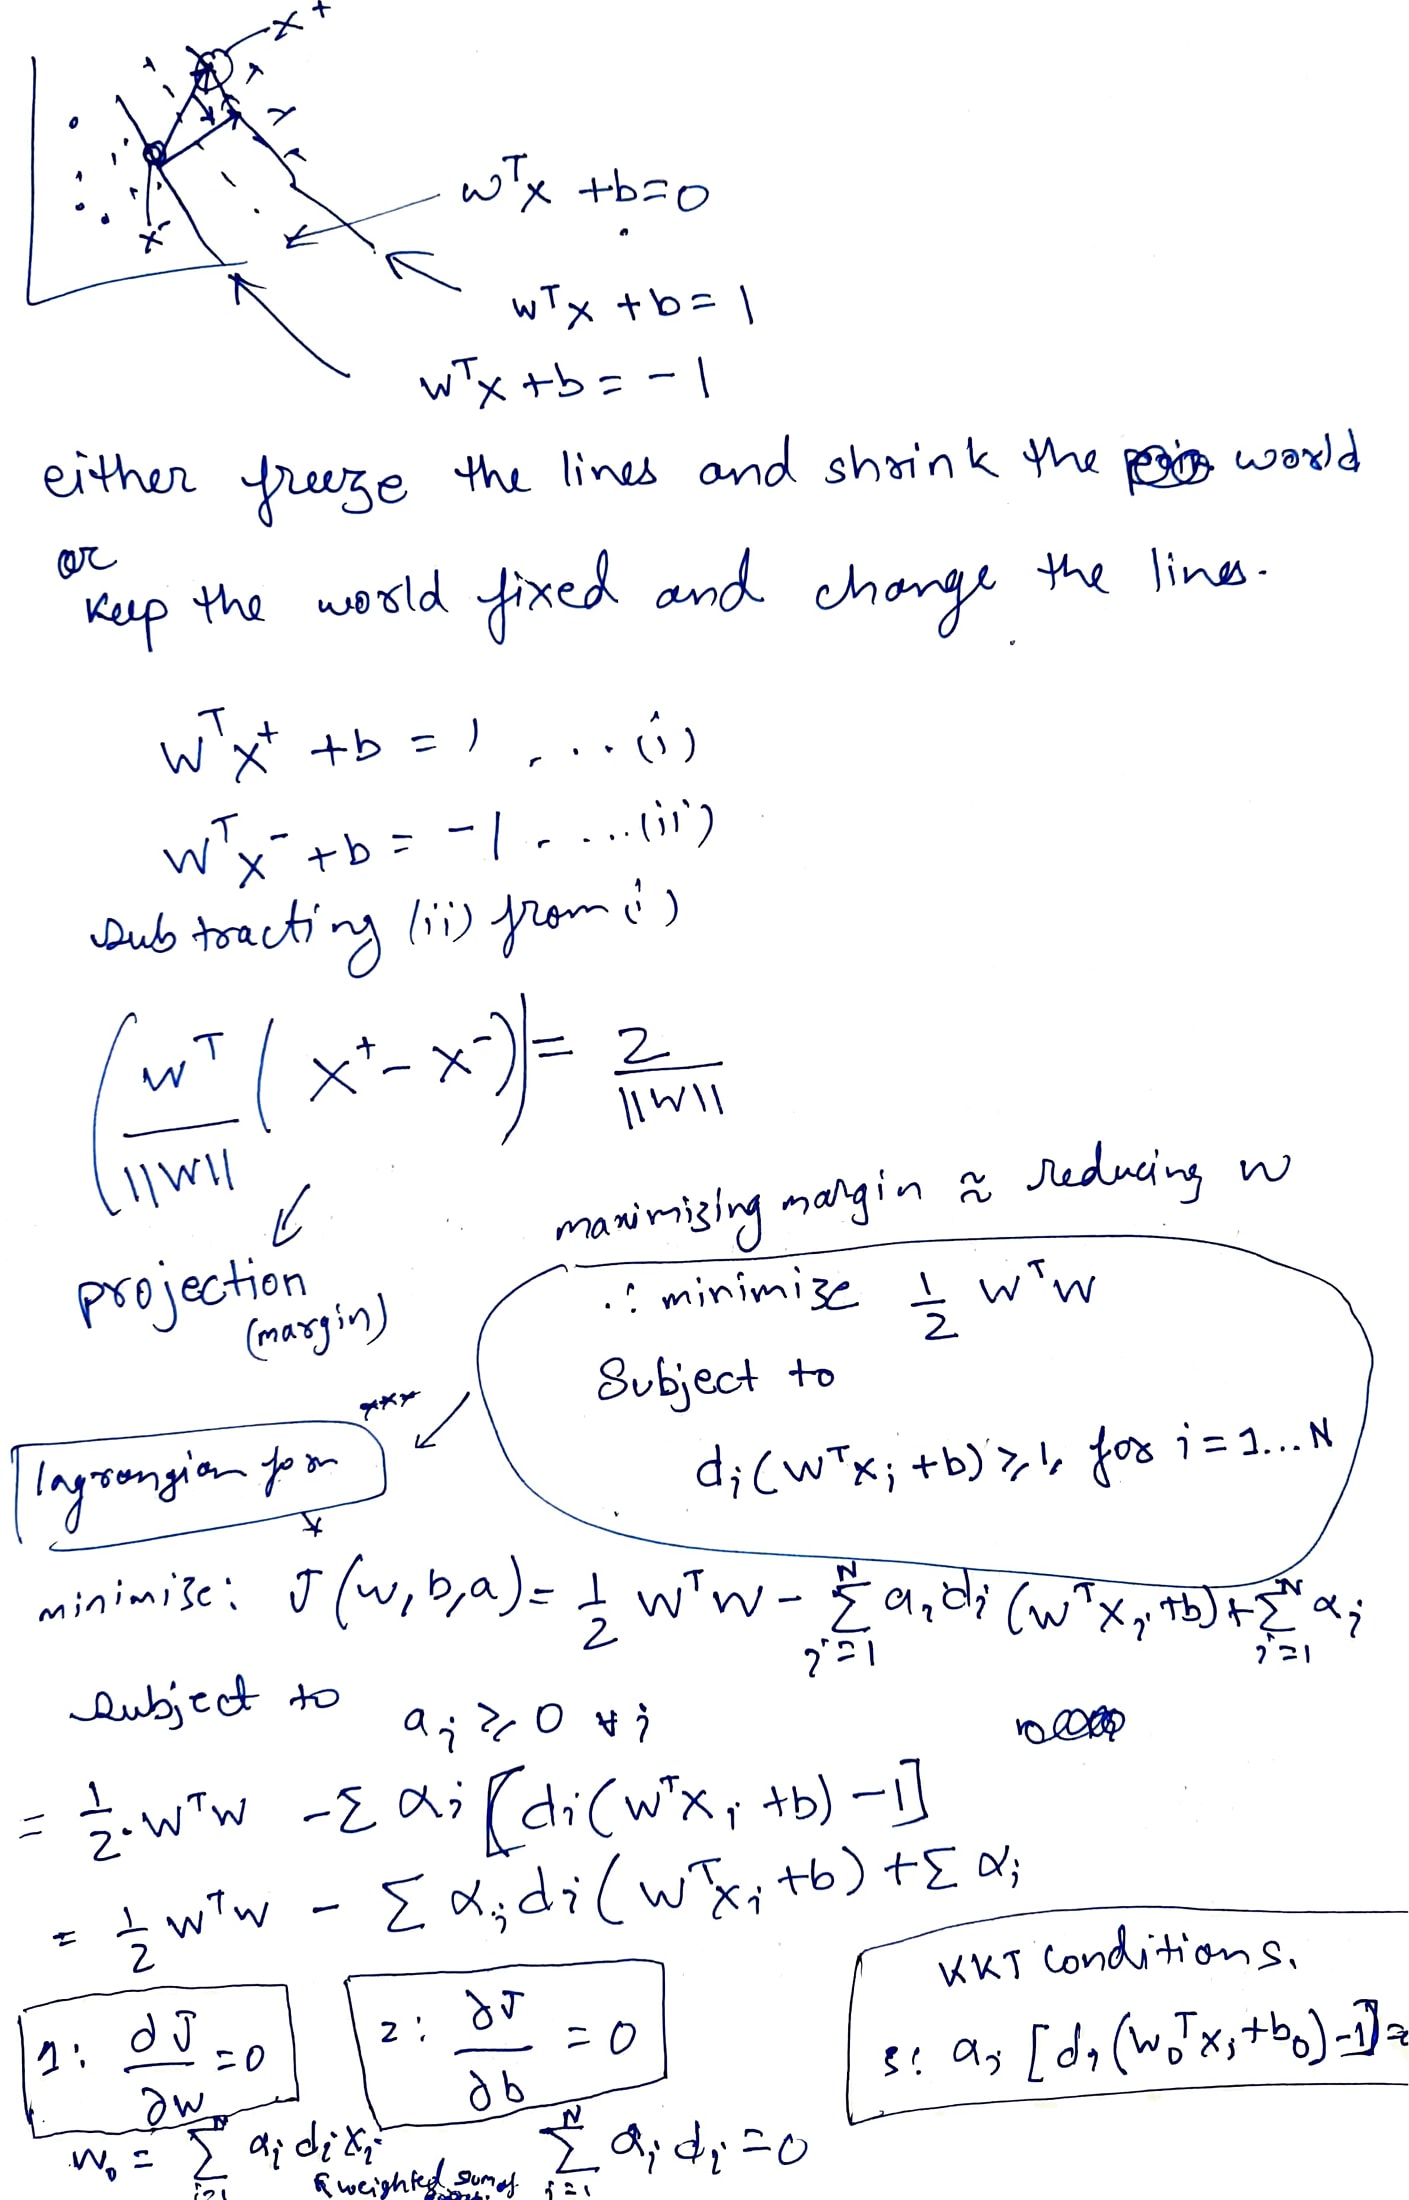 x⁺
wᵀx +b=0
x⁻
wᵀx +b= 1
wᵀx +b = -1
either freeze the lines and shrink the world
or
keep the world fixed and change the lines.
wᵀx⁺ +b = 1 ....(i)
wᵀx⁻ +b = -1 .....(ii)
subtracting (ii) from i)
(wᵀ/||w|| (x⁺ - x⁻)) = 2/||w||
projection
(margin)
maximizing margin ≈ reducing w
∴ minimize 1/2 wᵀw
Subject to
dᵢ(wᵀxᵢ +b) ≥ 1, for i = 1...N
***
lagrangian form
minimize: J(w,b,a) = 1/2 wᵀw - Σᵢ₌₁ᴺ aᵢdᵢ(wᵀxᵢ+b) + Σᵢ₌₁ᴺ αᵢ
subject to aᵢ ≥ 0 ∀ i
= 1/2 . wᵀw - Σ αᵢ [dᵢ(wᵀxᵢ +b) -1]
= 1/2 wᵀw - Σ αᵢdᵢ(wᵀxᵢ +b) + Σ αᵢ
1: dJ/∂w = 0
2: ∂J/∂b = 0
KKT conditions.
3: aᵢ [dᵢ(w₀ᵀxᵢ+b₀)-1]=
w₀ = Σᵢ₌₁ᴺ αᵢdᵢxᵢ
weighted sum of
Σᵢ₌₁ᴺ αᵢdᵢ = 0